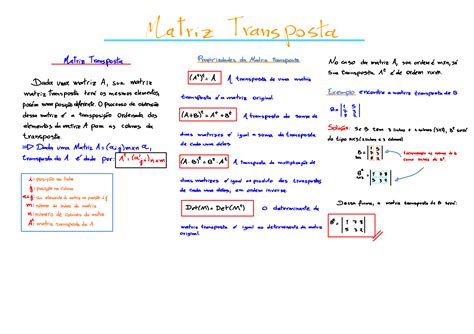 Matriz Transposta
Matriz Transposta
Dada uma matriz A, sua matriz
matriz transposta tem os mesmos elementos,
porém uma posição diferente. O processo de obtenção
dessa matriz é a transposição ordenada dos
elementos da matriz A para as colunas da
transposta.
⇒ Dada uma Matriz A = (aij)mxn a,
transposta de A é dada por: Aᵗ = (a'ji)nxm
i = posição na linha
j = posição na coluna
m: número de linhas da matriz
n: número de colunas da matriz
Aᵗ: matriz transposta de A
Propriedades da Matriz Transposta
(Aᵗ)ᵗ = A A transposta de uma matriz
transposta é a matriz original.
(A+B)ᵗ = Aᵗ + Bᵗ A transposta da soma de
duas matrizes é igual a soma da transposta
de cada uma delas.
(A·B)ᵗ = Bᵗ · Aᵗ A transposta da multiplicação de
duas matrizes é igual ao produto das transpostas
de cada uma delas, em ordem inversa.
Det(M) = Det(Mᵗ) O determinante da
matriz transposta é igual ao determinante da matriz
original.
No caso da matriz A, sua ordem é mxn, já
sua transposta Aᵗ é de ordem nxm.
Exemplo: encontre a matriz transposta de B
B =
Solução:
B =
Bᵗ =
Dessa forma, a matriz transposta de B será:
Bᵗ =